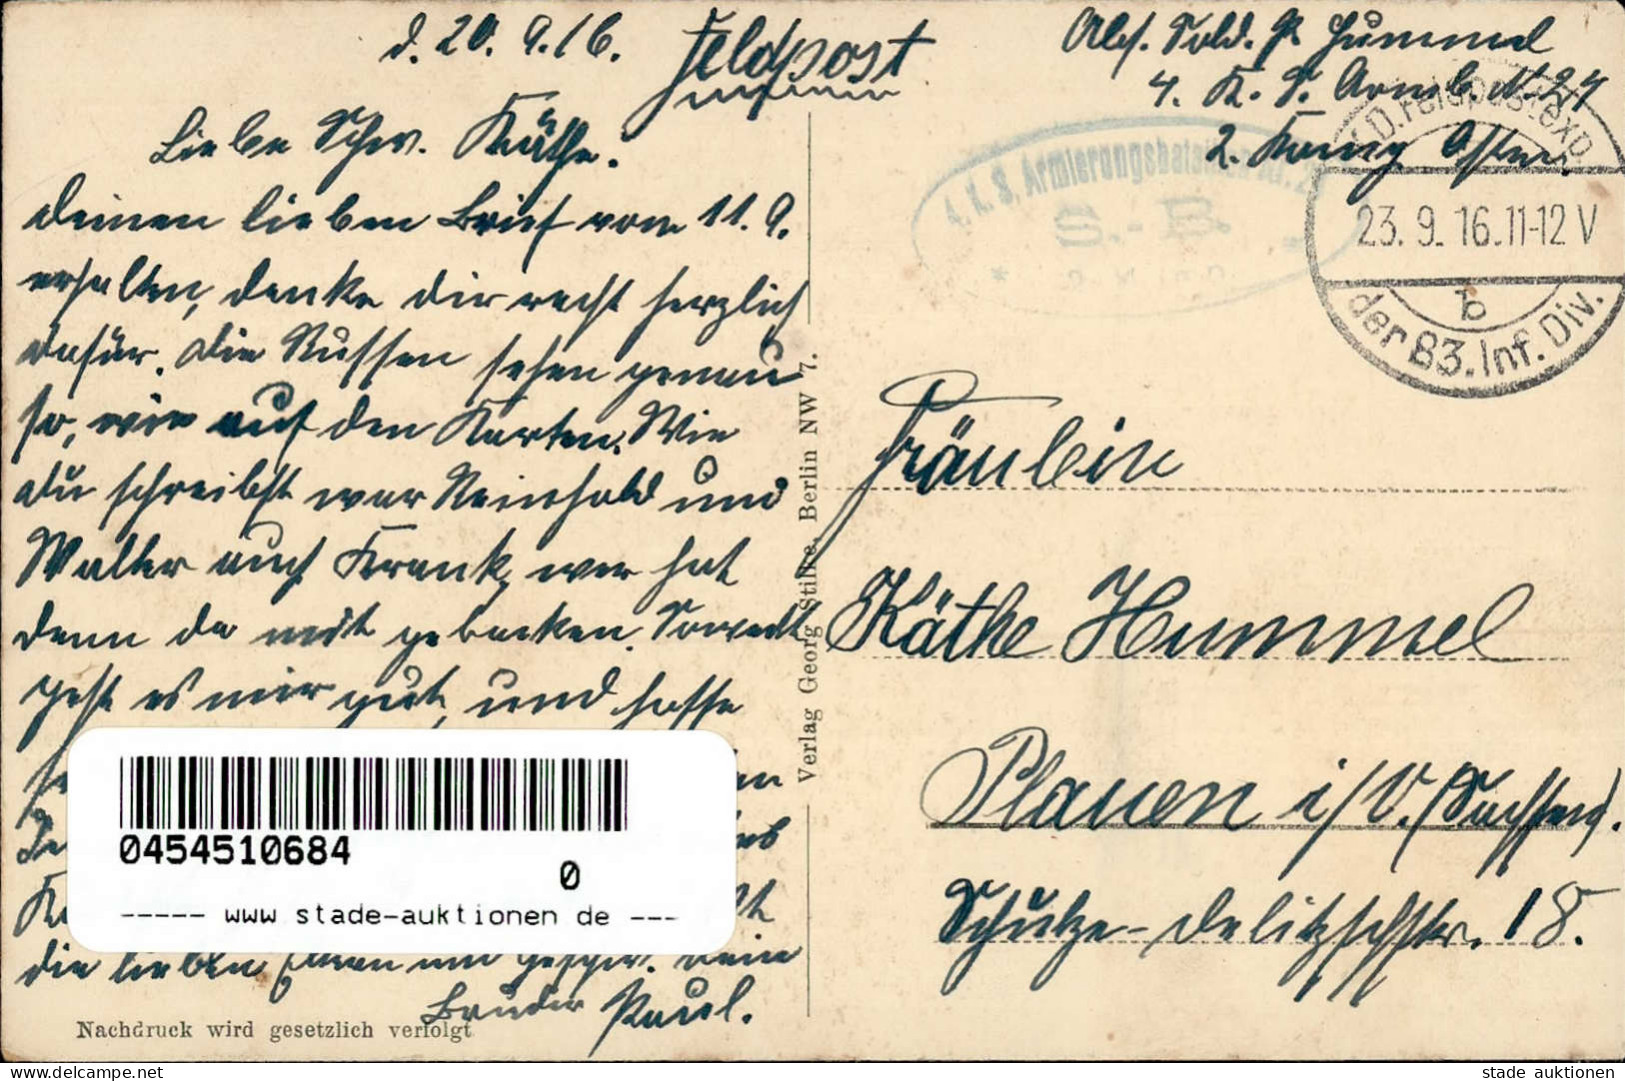 d. 20. 9. 16. Feldpost
Liebe Schw. Käthe.
Deinen lieben Brief vom 11. 9.
erhalten, danke dir recht herzlich
dafür. Die Russen sehen genau
so, wie auf den Karten. Wie
du schreibst war Reinhold und
Walter auch krank, wer hat
denn da mit gebacken. Soweit
geht es mir gut, und hoffe
die lieben Eltern und Geschw. Dein
Bruder Paul.
Nachdruck wird gesetzlich verfolgt
Verlag Georg Stilke, Berlin NW 7.
Abs. Sold. P. Hummel
4. K. S. Armb. N. 24
2. Komp. Osten.
4. K. S. Armierungsbataillon
S.-B.
K.D. Feldpostexp.
23. 9. 16. 11-12 V
b
der 83. Inf. Div.
Fräulein
Käthe Hummel
Plauen i/V. (Sachsen).
Schulze-Delitzschstr. 18.
0454510684
0
----- www stade-auktionen de ---
stade auktionen
delcampe.net